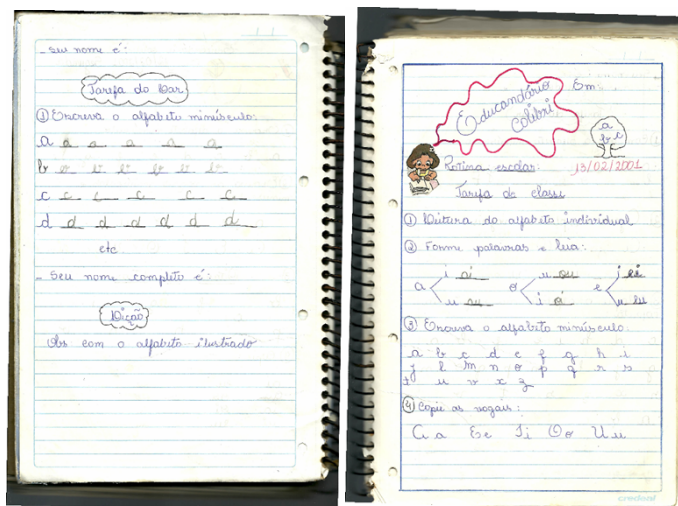 - Seu nome é:
Tarefa do Lar
① Escreva o alfabeto minúsculo:
a a a a a a
b b b b b b
c c c c c c
d d d d d d d
etc
- Seu nome completo é:
Lição
Obs com o alfabeto ilustrado
Educandário
Colibri
Em:
a
b c
Rotina escolar
13/02/2001
Tarefa de classe
① Leitura do alfabeto individual
② Forme palavras e leia:
i ai u ou i ei
a o e
u au i oi u eu
③ Escreva o alfabeto minúsculo:
a b c d e f g h i
j l m n o p q r s
t u v x z
④ Copie as vogais:
A a E e I i O o U u
credeal